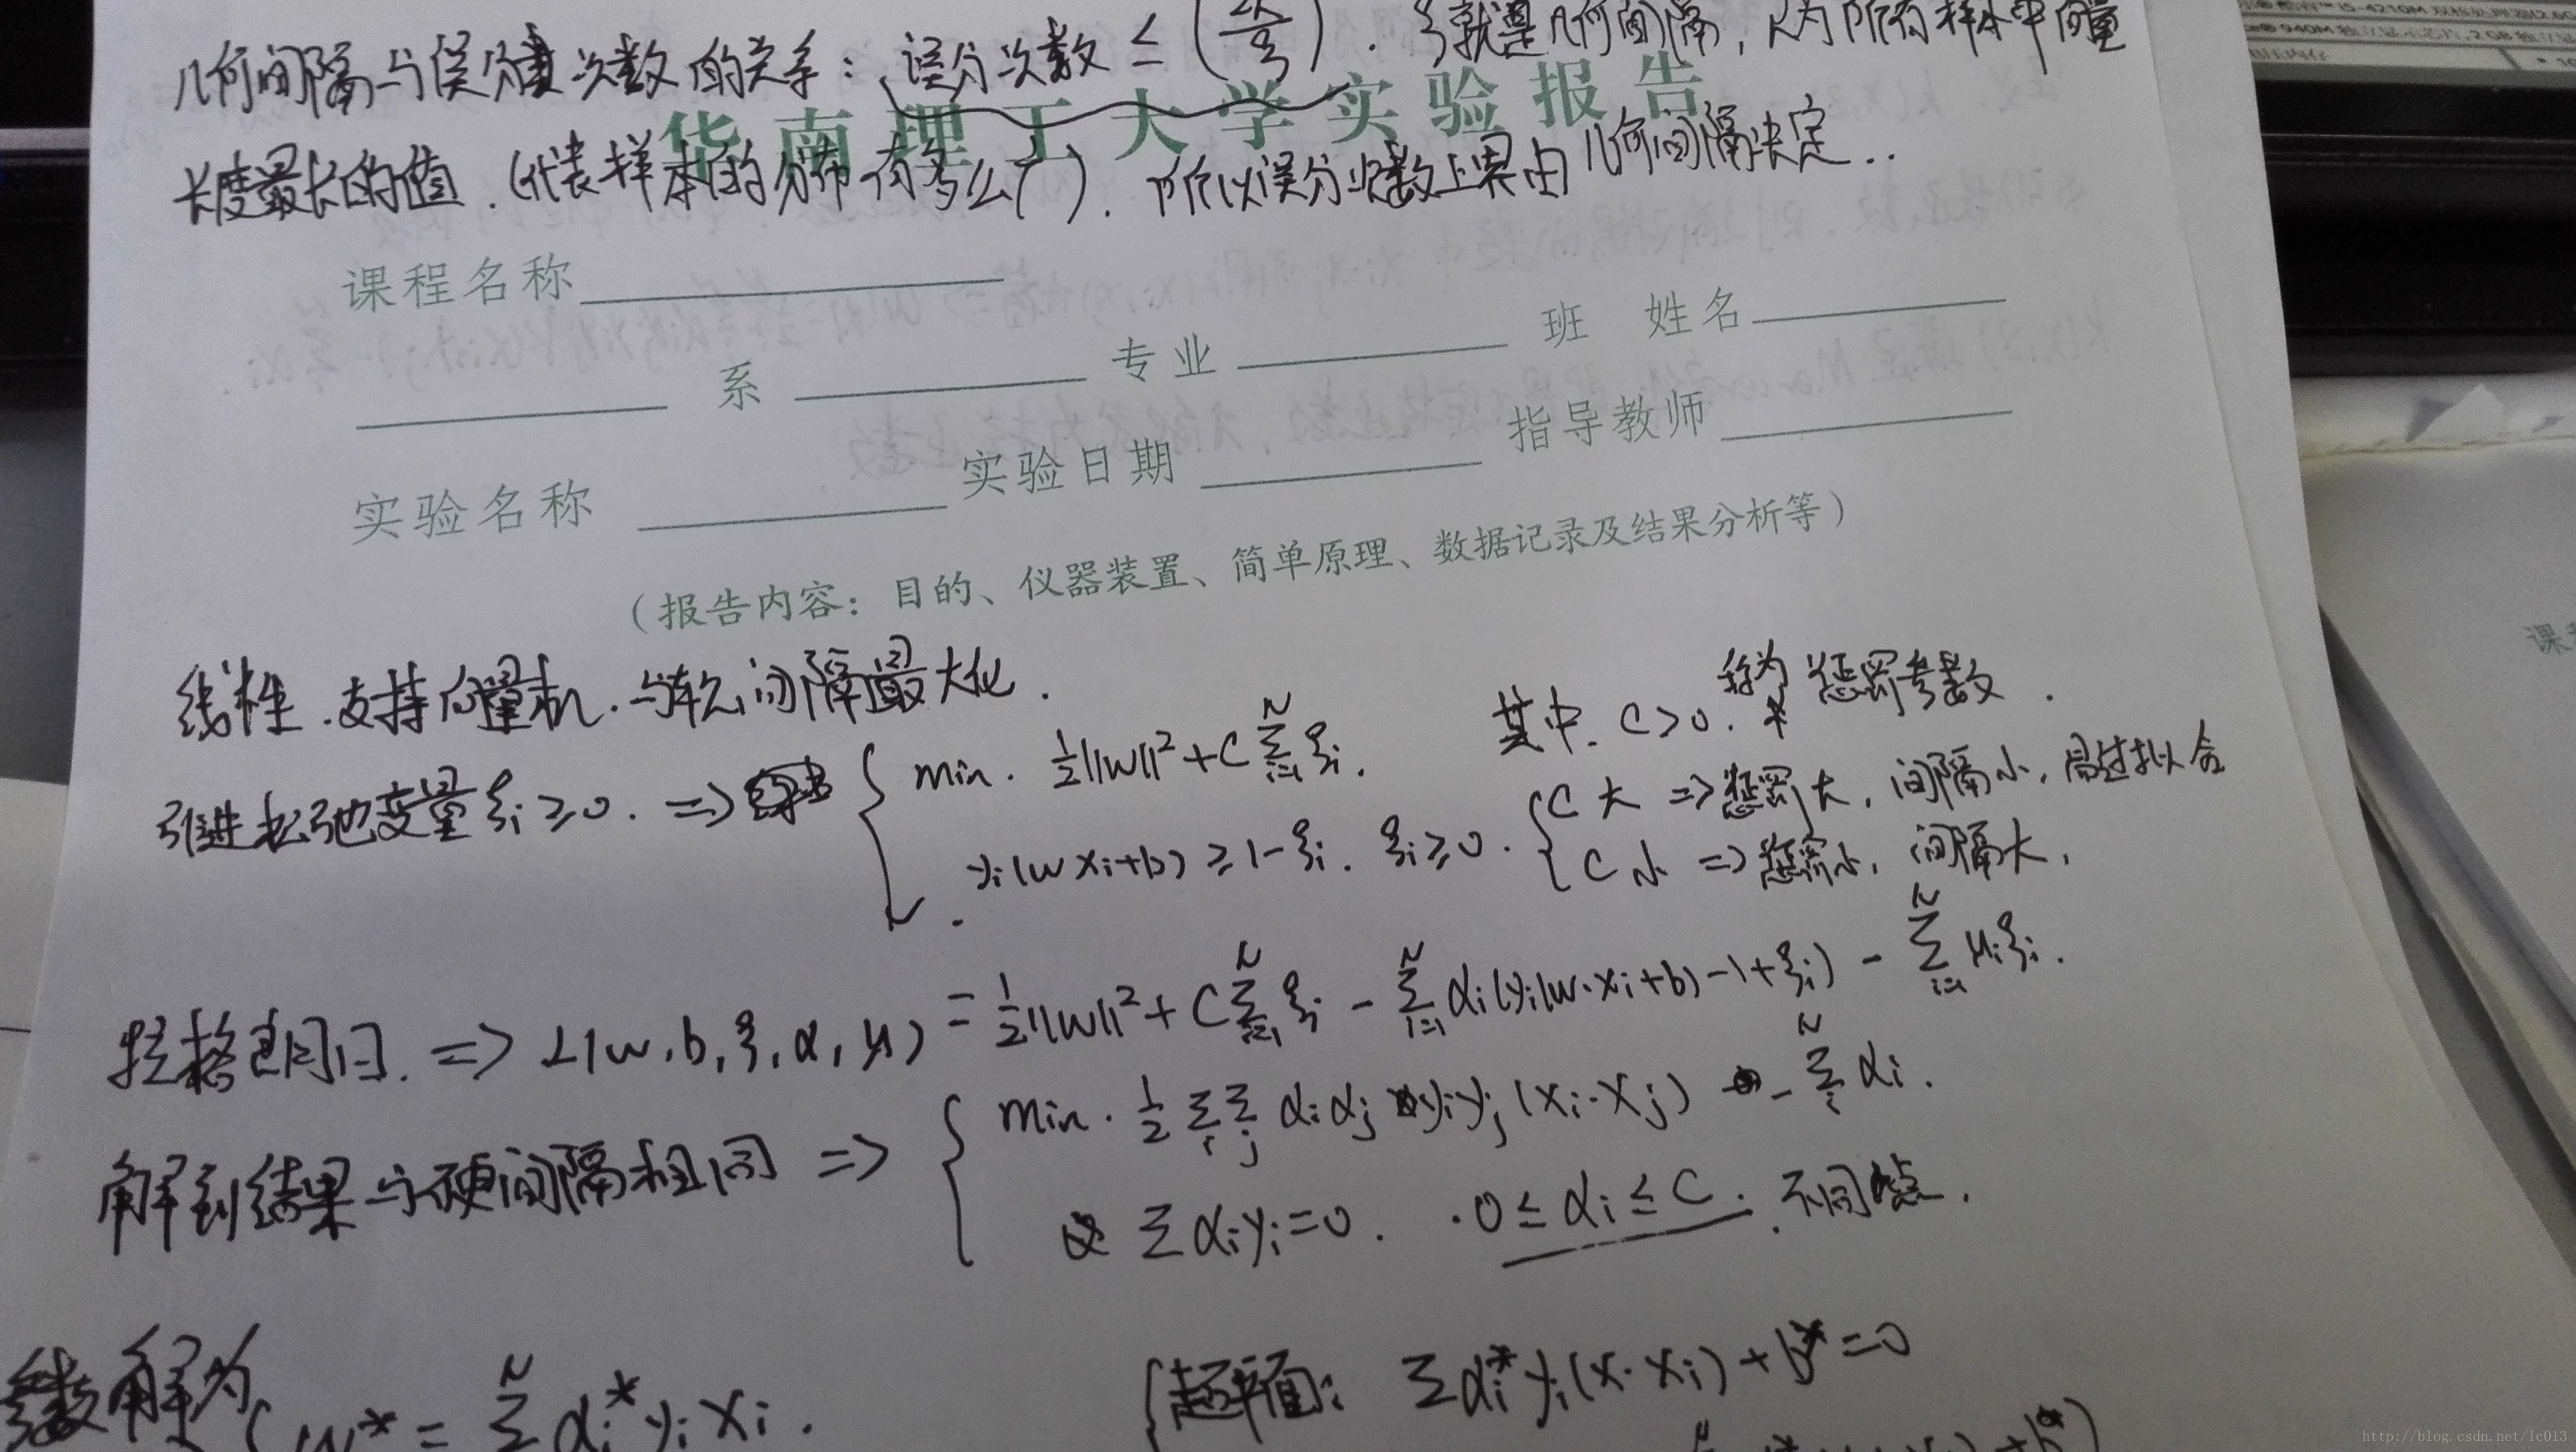 几何间隔与误分类次数的关系：误分次数 ≤ (2R/δ). δ就是几何间隔, R为所有样本中向量
华南理工大学实验报告
长度最长的值. (代表样本的分布有多么广). 所以误分次数上界由几何间隔决定..
课程名称
系 专业 班 姓名
实验名称 实验日期 指导教师
（报告内容：目的、仪器装置、简单原理、数据记录及结果分析等）
线性.支持向量机.与软间隔最大化.
引进松弛变量 ξi ≥ 0. => { min. ½||w||² + C Σ_{i=1}^N ξi. 其中. C>0. 称为惩罚参数.
yi(w xi+b) ≥ 1-ξi. ξi ≥ 0. { C大 => 惩罚大, 间隔小, 易过拟合
C小 => 惩罚小, 间隔大,
拉格朗日. => L(w, b, ξ, α, μ) = ½||w||² + C Σ_{i=1}^N ξi - Σ_{i=1}^N αi(yi(w·xi+b)-1+ξi) - Σ_{i=1}^N μiξi.
解到结果与硬间隔相同 => { min. ½ Σ_i Σ_j αi αj yi yj (xi·xj) - Σ_i^N αi.
Σαiyi=0. ·0 ≤ αi ≤ C. 不同点.
解为 { w* = Σ^N αi* yi xi. { 超平面: Σαi* yi(x·xi) + b* = 0
+b*)
http://blog.csdn.net/lc013